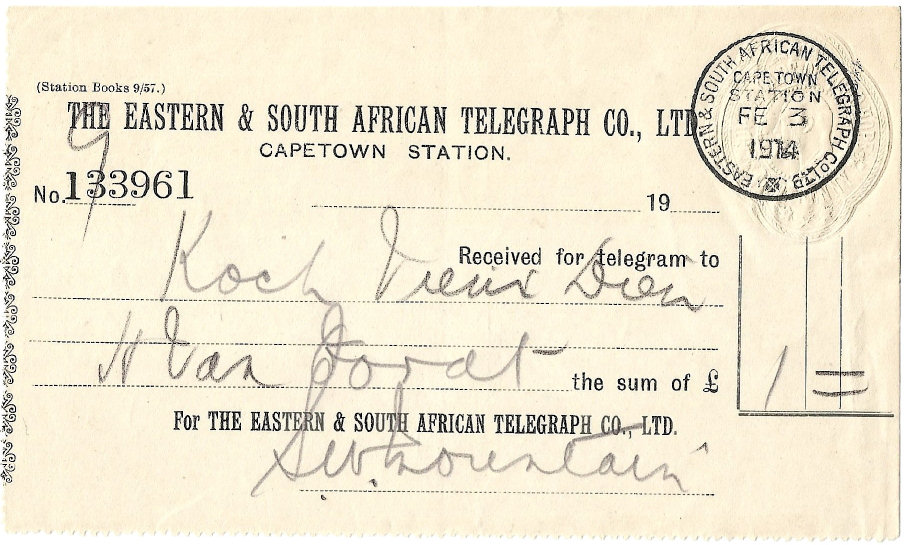 (Station Books 9/57.)
THE EASTERN & SOUTH AFRICAN TELEGRAPH CO., LTD
CAPETOWN STATION.
EASTERN & SOUTH AFRICAN TELEGRAPH CO. LTD
CAPE TOWN
STATION
FE 3
1914
9
No. 133961
19
Received for telegram to
Koch
N Van
the sum of £
1 =
For THE EASTERN & SOUTH AFRICAN TELEGRAPH CO., LTD.